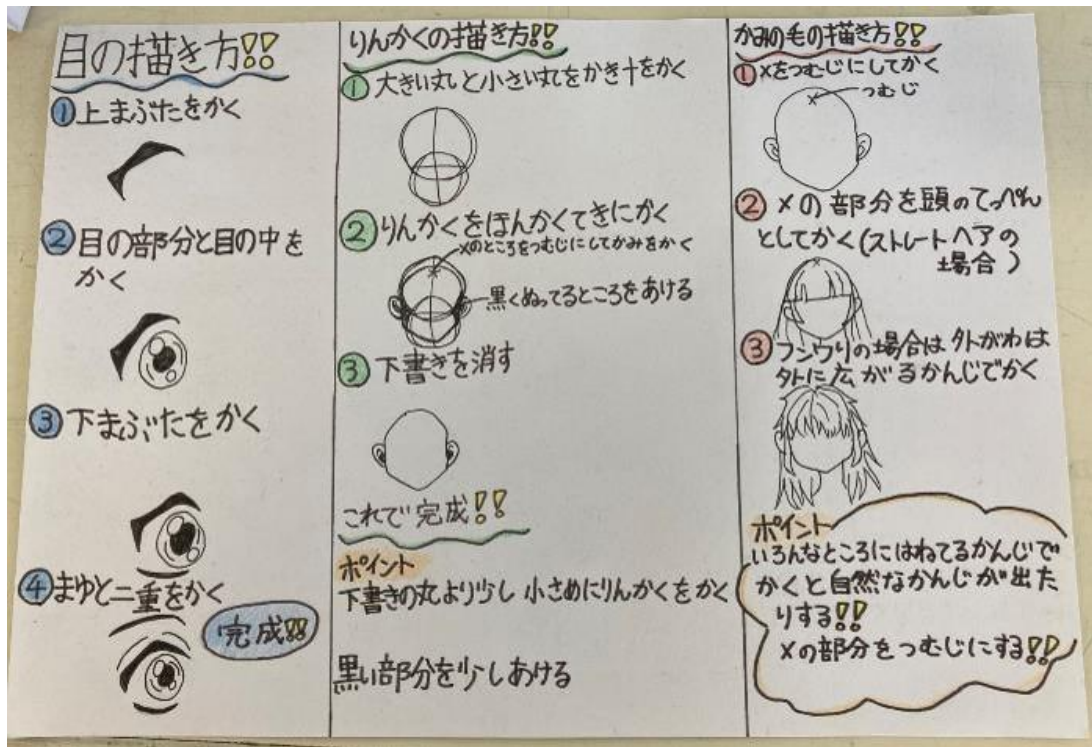 目の描き方!!
①上まぶたをかく
②目の部分と目の中を
かく
③下まぶたをかく
④まゆと二重をかく
完成!!
りんかくの描き方!!
①大きい丸と小さい丸をかき十をかく
②りんかくをほんかくてきにかく
×のところをつむじにしてかみをかく
黒くぬってるところをあける
③下書きを消す
これで完成!!
ポイント
下書きの丸より少し小さめにりんかくをかく
黒い部分を少しあける
かみの毛の描き方!!
①×をつむじにしてかく
つむじ
②×の部分を頭のてっぺん
としてかく(ストレートヘアの
場合)
③フンワリの場合は外がわは
外に広がるかんじでかく
ポイント
いろんなところにはねてるかんじで
かくと自然なかんじが出た
りする!!
×の部分をつむじにする!!